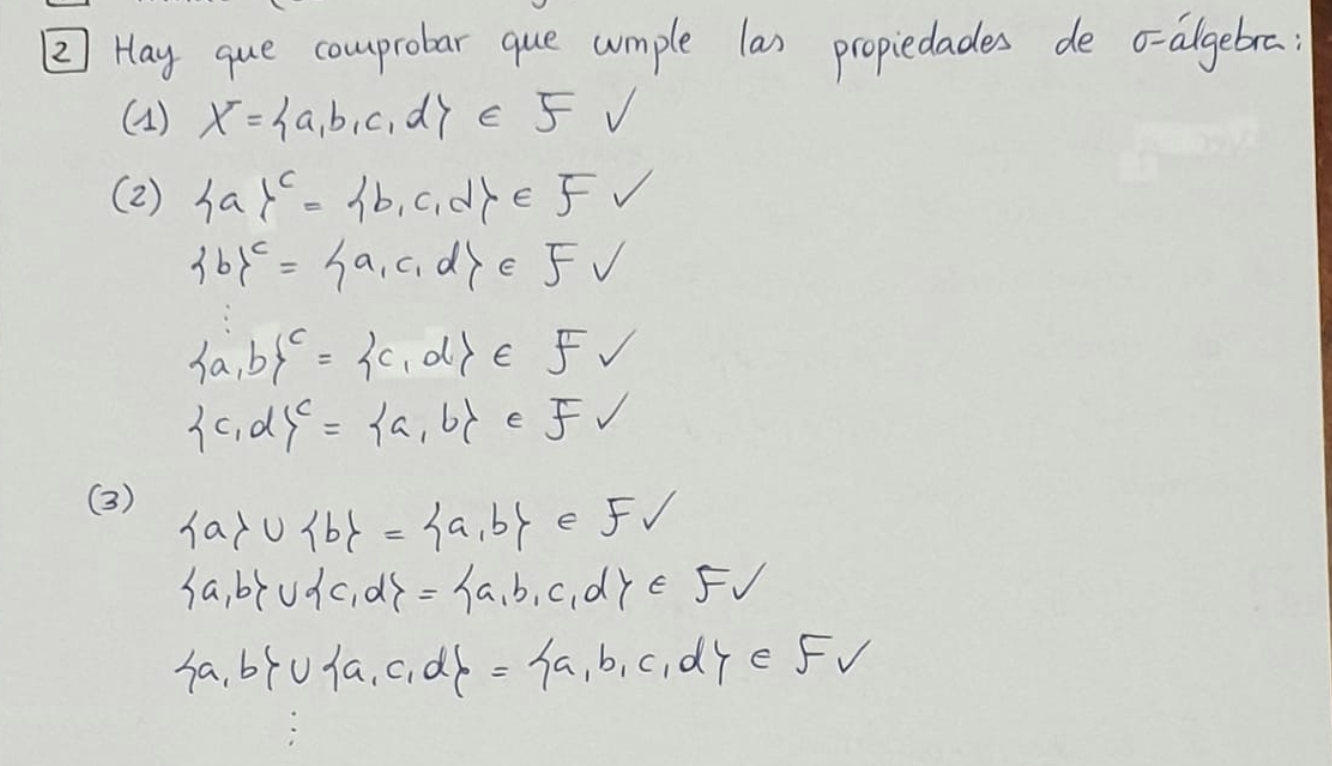 2 Hay que comprobar que cumple las propiedades de σ-álgebra:
(1) X = {a,b,c,d} ∈ F ✓
(2) {a}ᶜ = {b,c,d} ∈ F ✓
{b}ᶜ = {a,c,d} ∈ F ✓
⋮
{a,b}ᶜ = {c,d} ∈ F ✓
{c,d}ᶜ = {a,b} ∈ F ✓
(3)
{a} ∪ {b} = {a,b} ∈ F ✓
{a,b} ∪ {c,d} = {a,b,c,d} ∈ F ✓
{a,b} ∪ {a,c,d} = {a,b,c,d} ∈ F ✓
⋮